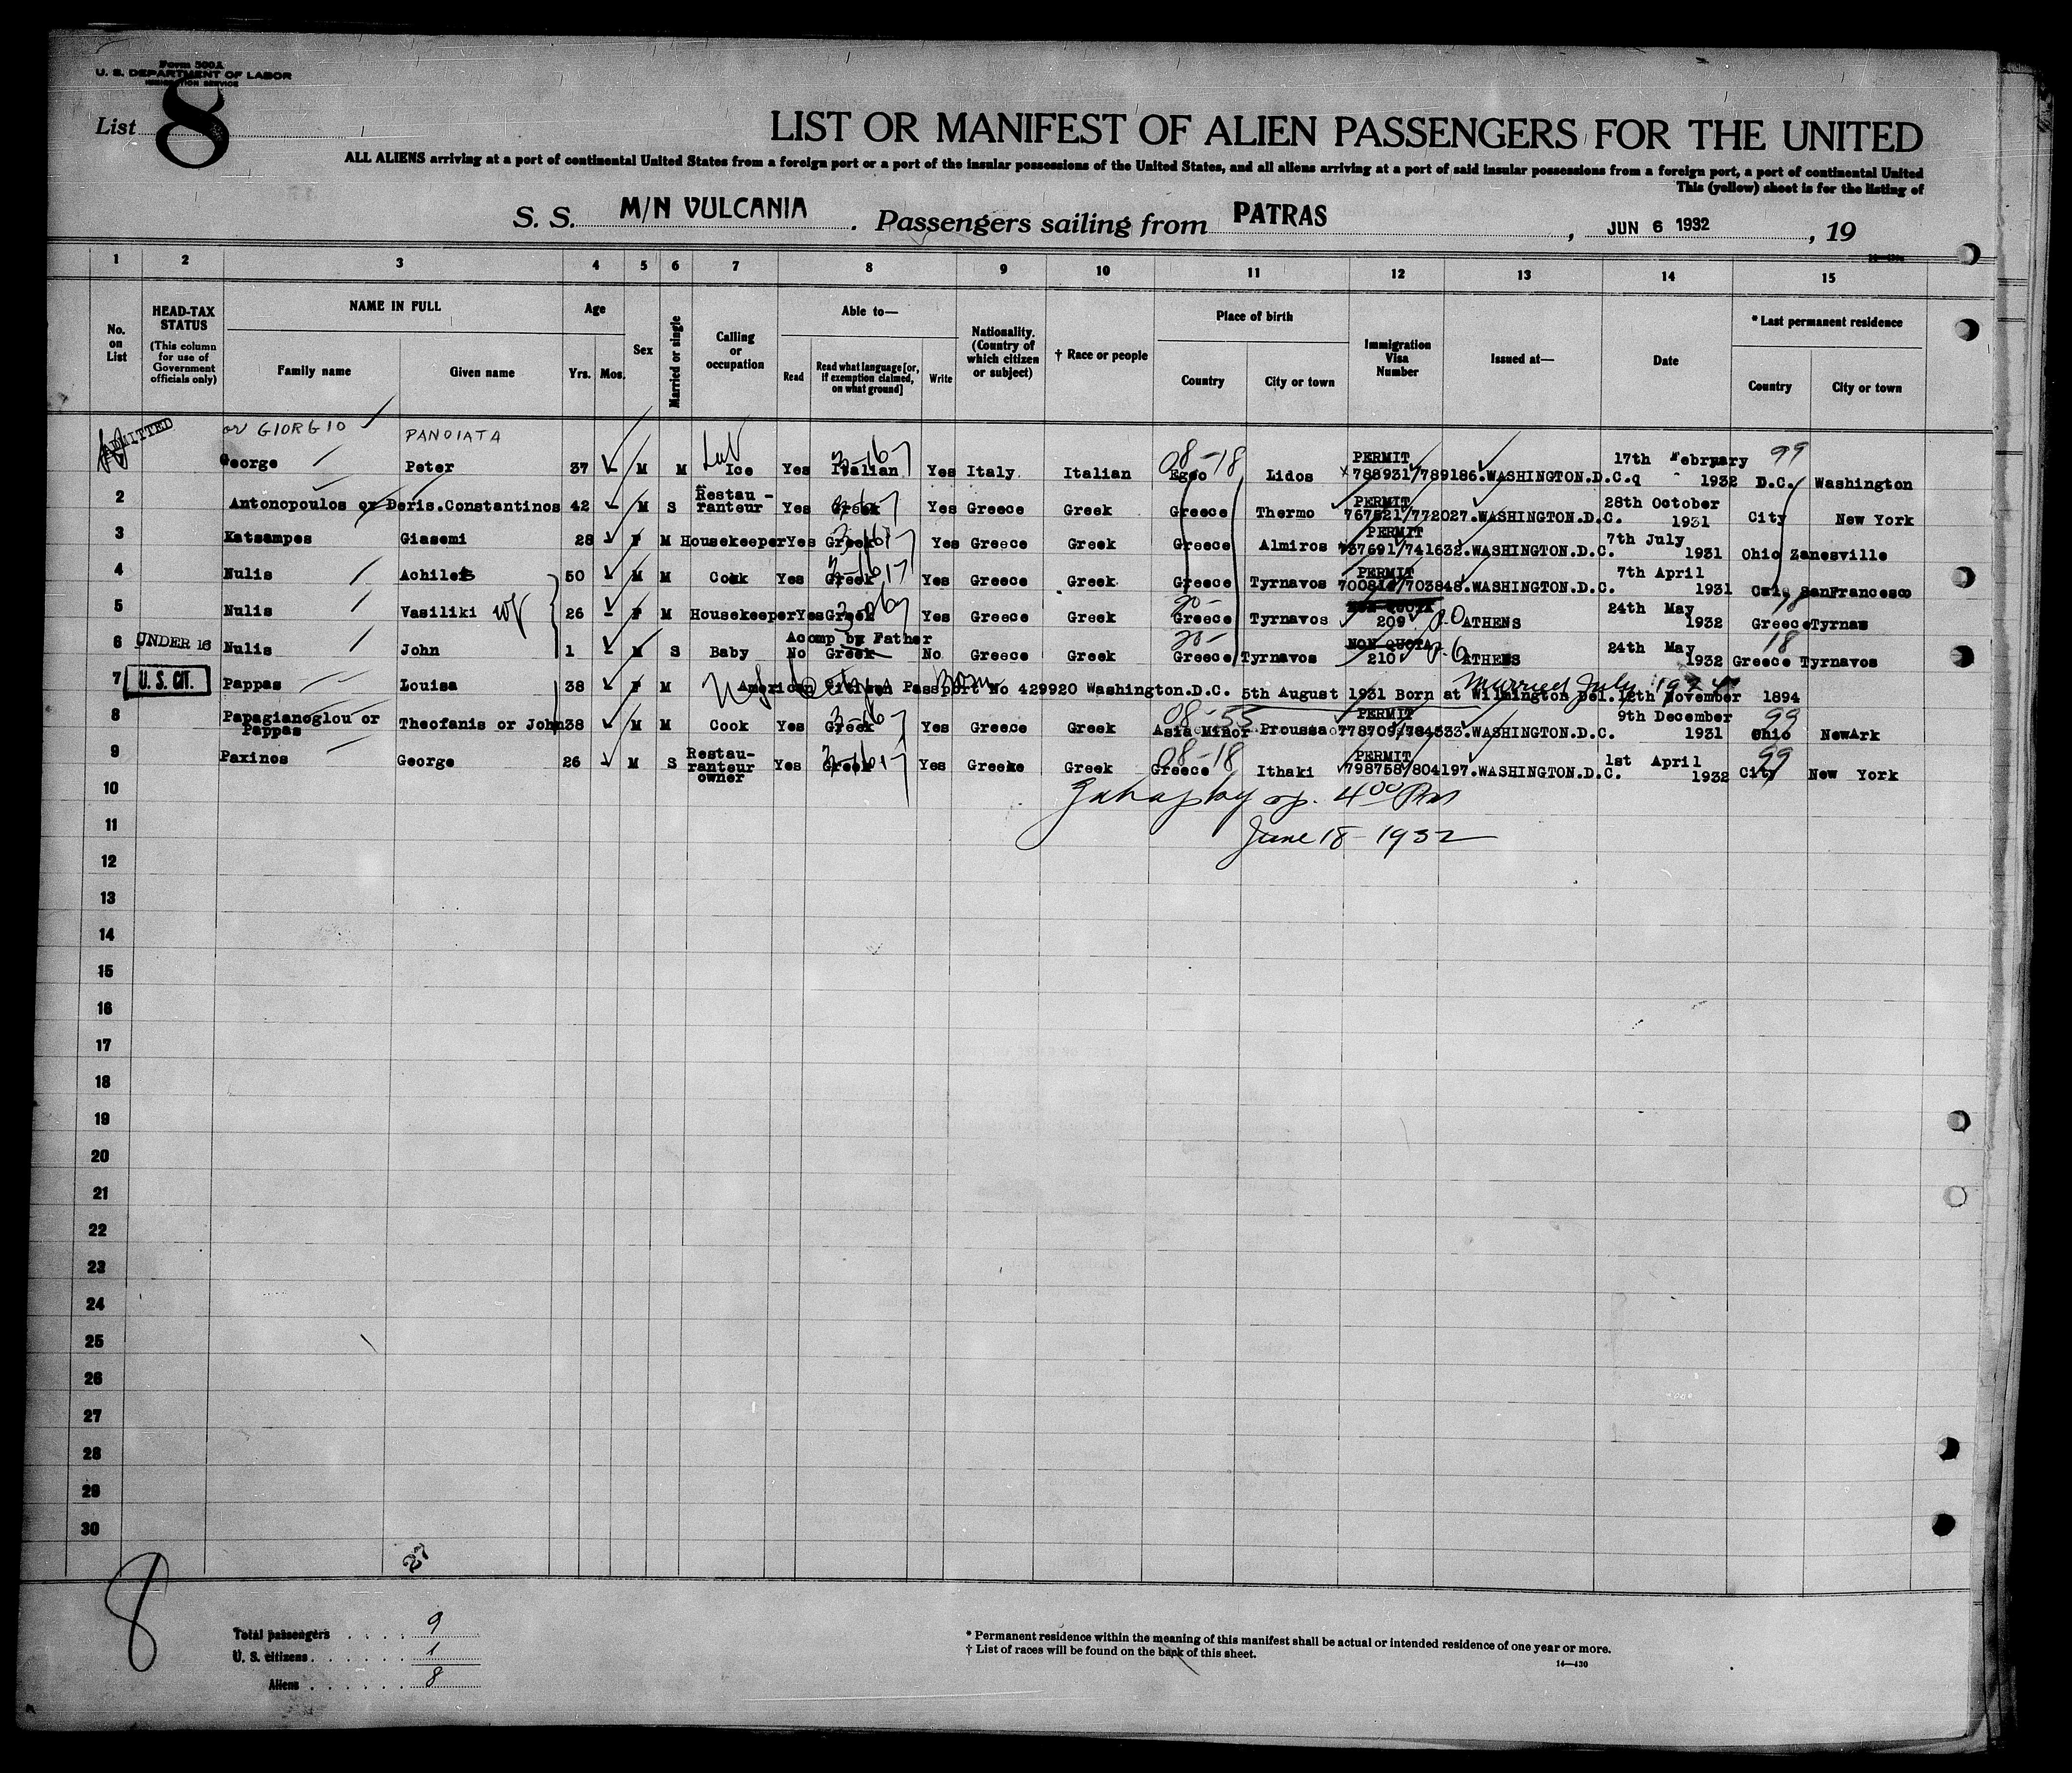 Form 500A
U. S. DEPARTMENT OF LABOR
IMMIGRATION SERVICE
List 8
LIST OR MANIFEST OF ALIEN PASSENGERS FOR THE UNITED
ALL ALIENS arriving at a port of continental United States from a foreign port or a port of the insular possessions of the United States, and all aliens arriving at a port of said insular possessions from a foreign port, a port of continental United
This (yellow) sheet is for the listing of
S. S. M/N VULCANIA . Passengers sailing from PATRAS , JUN 6 1932 , 19
1 2 3 4 5 6 7 8 9 10 11 12 13 14 15
No. on List
HEAD-TAX STATUS (This column for use of Government officials only)
NAME IN FULL
Family name Given name
Age
Yrs. Mos.
Sex
Married or single
Calling or occupation
Able to—
Read Read what language [or, if exemption claimed, on what ground] Write
Nationality. (Country of which citizen or subject)
† Race or people
Place of birth
Country City or town
Immigration Visa Number
Issued at—
Date
* Last permanent residence
Country City or town
ADMITTED or GIORGIO PANOIATA
George Peter 37 - M M Ice Yes Italian Yes Italy. Italian Egeo 08-18 Lidos PERMIT 788931/789186. WASHINGTON.D.C. 17th February 1932 99 D.C. Washington
2 Antonopoulos or Deris. Constantinos 42 - M S Restau-ranteur Yes Greek Yes Greece Greek Greece Thermo PERMIT 767521/772027. WASHINGTON.D.C. 28th October 1931 City New York
3 Katsampes Giasemi 28 - F M Housekeeper Yes Greek Yes Greece Greek Greece Almiros PERMIT 737691/741632. WASHINGTON.D.C. 7th July 1931 Ohio Zanesville
4 Nulis Achiles 50 - M M Cook Yes Greek Yes Greece Greek Greece Tyrnavos PERMIT WASHINGTON.D.C. 7th April 1931 SanFrancesco
5 Nulis Vasiliki wf 26 - F M Housekeeper Yes Greek Yes Greece Greek Greece Tyrnavos NON QUOTA 209 ATHENS 24th May 1932 18 Greece Tyrnas
6 UNDER 16 Nulis John 1 - M S Baby Acomp by Father No Greek No Greece Greek Greece Tyrnavos NON QUOTA 210 ATHENS 24th May 1932 18 Greece Tyrnavos
7 U. S. CIT. Pappas Louisa 38 - F M American Citizen Passport No 429920 Washington.D.C. 5th August 1931 Born at Wilmington Del. 12th November 1894
Married July 1924
8 Papagianoglou or Pappas Theofanis or John 38 - M M Cook Yes Greek Yes Greece Greek 08-55 Asia Minor Proussa PERMIT WASHINGTON.D.C. 9th December 1931 99 Ohio NewArk
9 Paxinos George 26 - M S Restau-ranteur owner Yes Greek Yes Greeke Greek 08-18 Greece Ithaki PERMIT 798758/804197. WASHINGTON.D.C. 1st April 1932 99 City New York
10 4 00 PM
11 June 18-1932
12
13
14
15
16
17
18
19
20
21
22
23
24
25
26
27
28
29
30
27
8
Total passengers . . . . 9
U. S. citizens . . . . . . 1
Aliens . . . . . . 8
* Permanent residence within the meaning of this manifest shall be actual or intended residence of one year or more.
† List of races will be found on the back of this sheet.
14—430